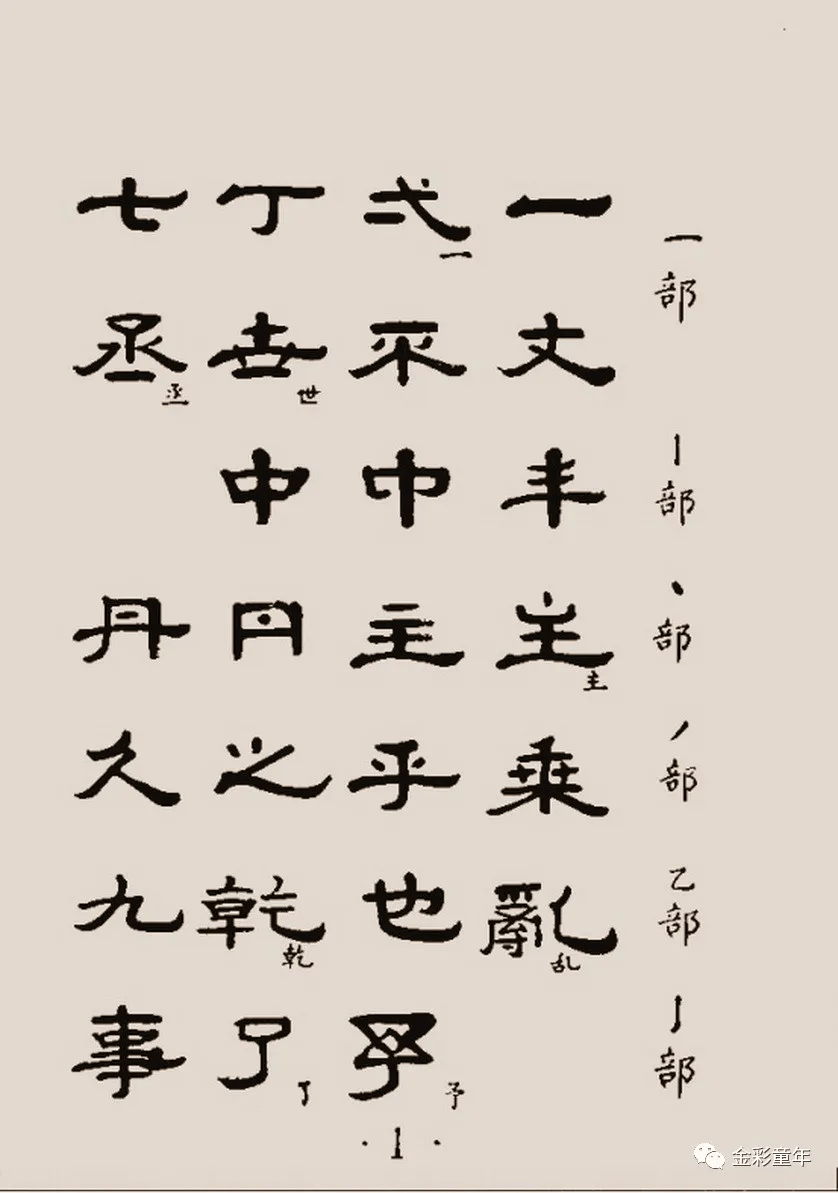 一部
一 弌 一 丁 七
丈 世 世 丞 丞
丨部
丰 中
丶部
主 主 主 丹 丹
丿部
乗 乎 之 久
乙部
亂 乱 也 乾 乾 九
亅部
予 予 了 了 事
·1·
金彩童年